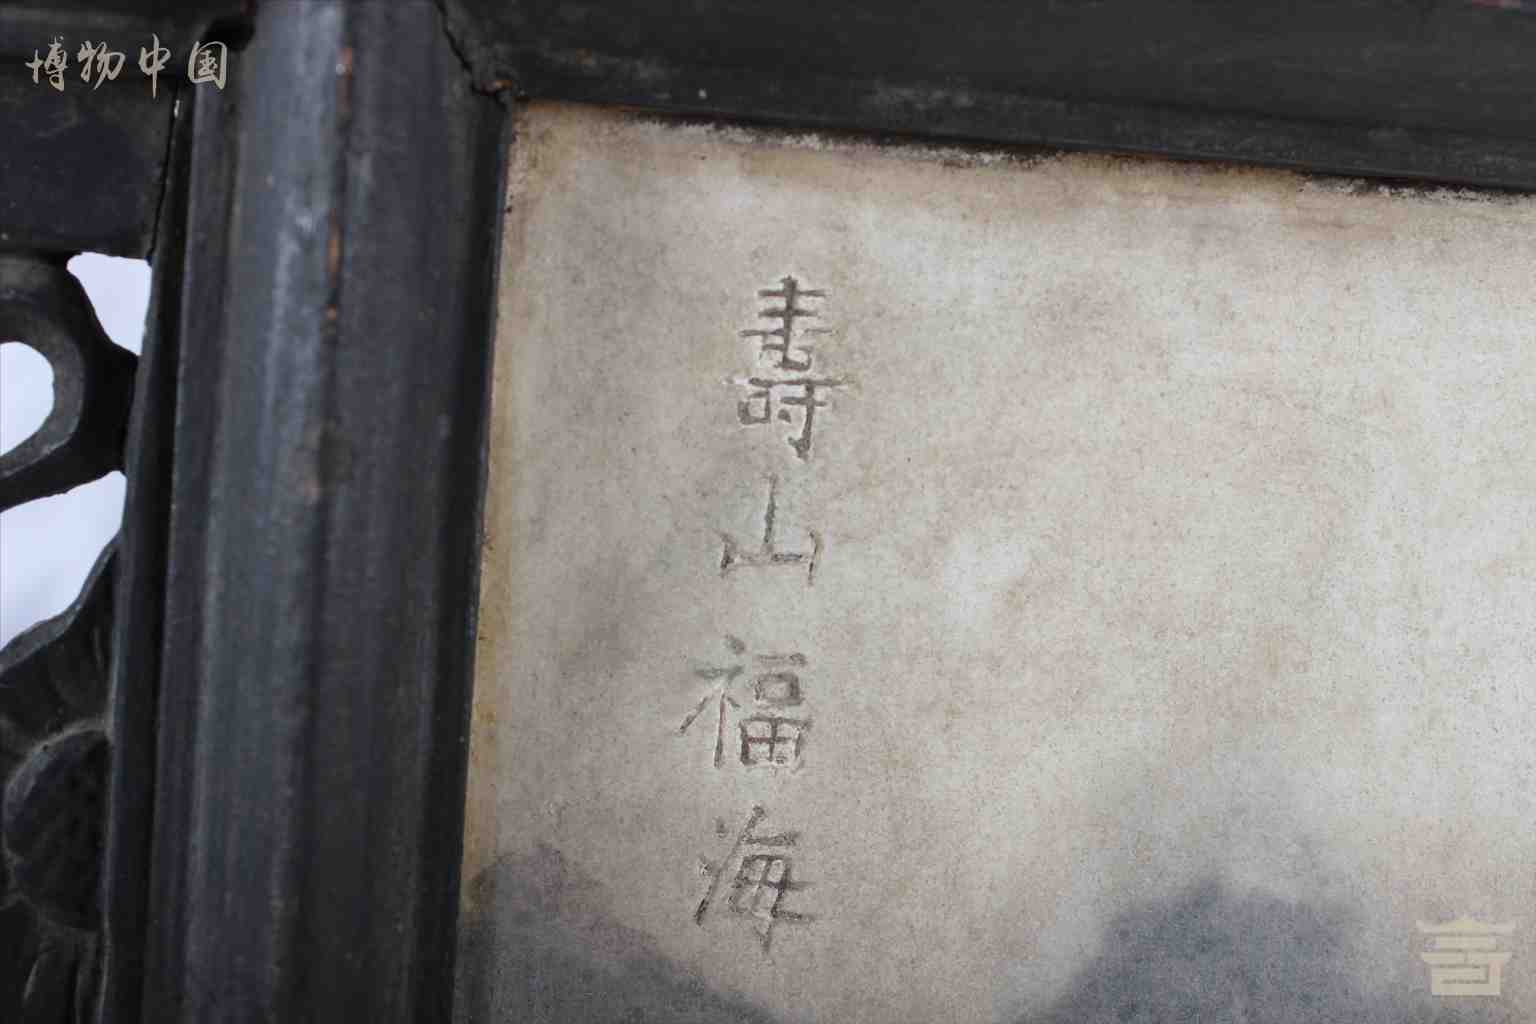 博物中国
壽山福海